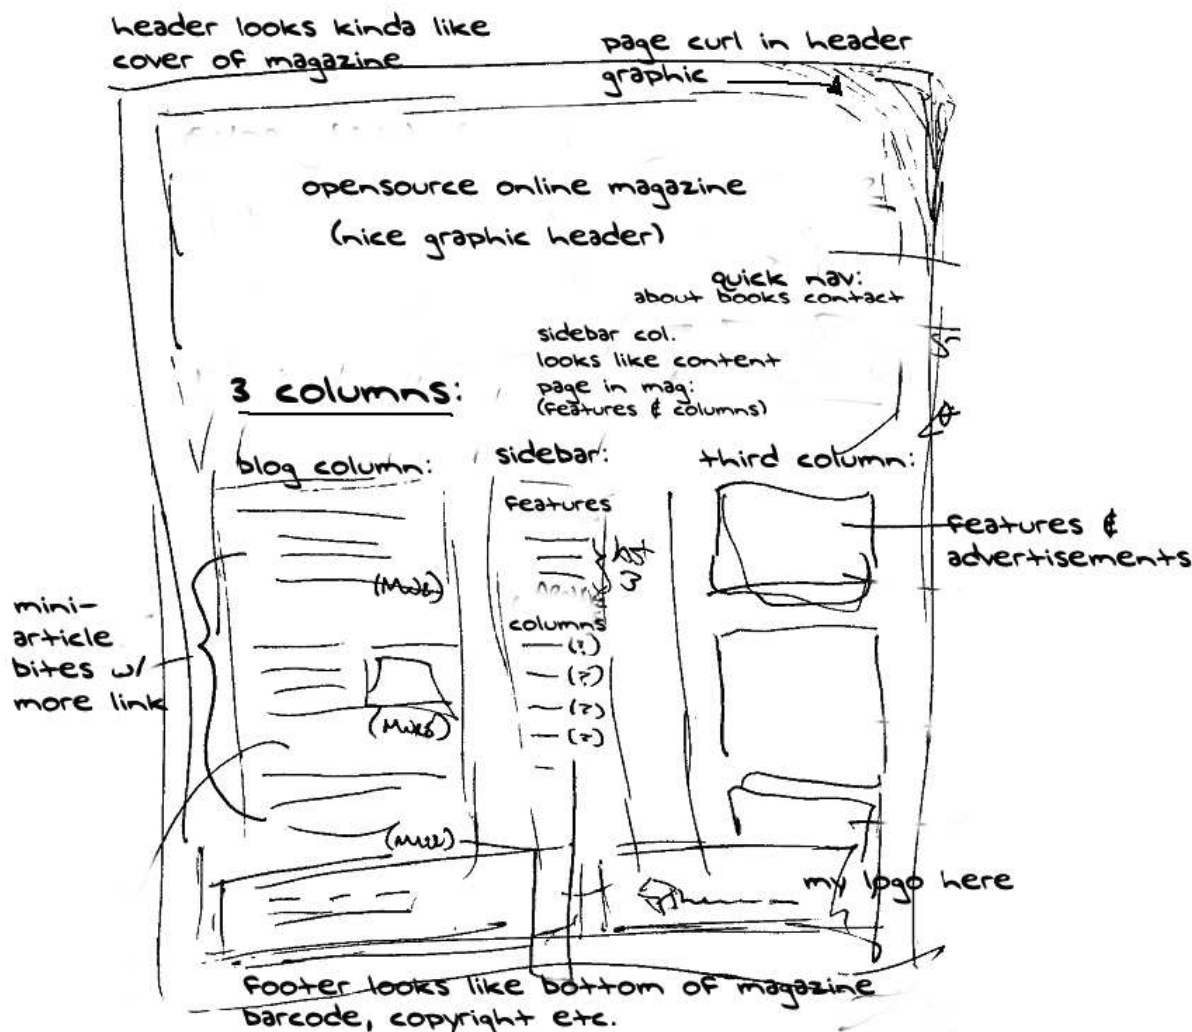 header looks kinda like
cover of magazine
page curl in header
graphic
opensource online magazine
(nice graphic header)
quick nav:
about books contact
sidebar col.
looks like content
page in mag:
(features & columns)
3 columns:
blog column:
sidebar:
third column:
features
features &
advertisements
3
mini-
article
bites w/
more link
columns
(?)
(?)
(?)
(?)
my logo here
footer looks like bottom of magazine
barcode, copyright etc.